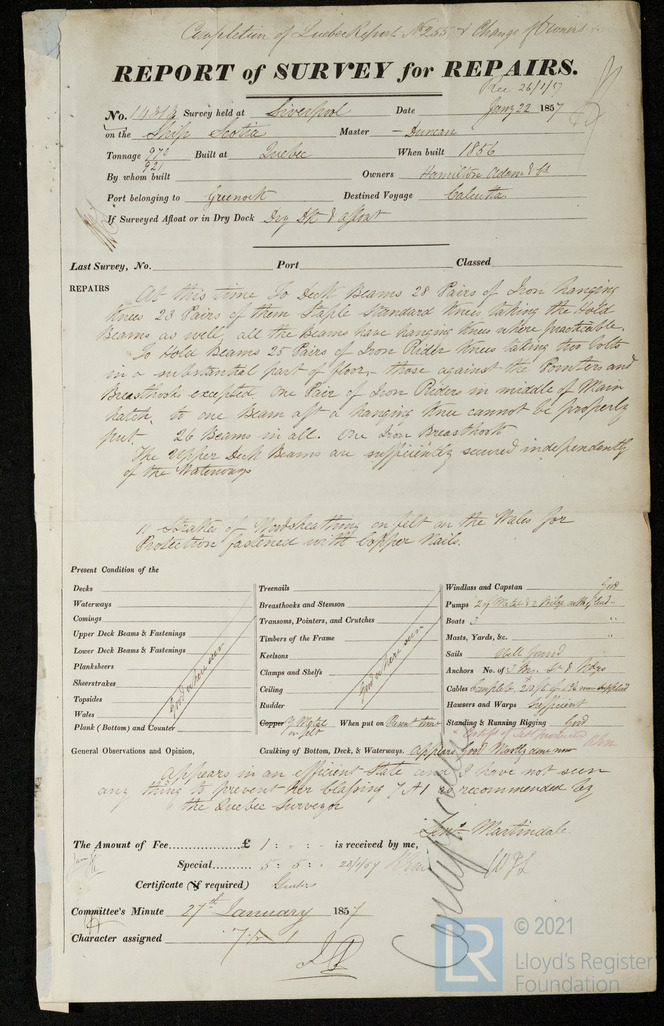 Completion of Quebec Report No 255 & Change of Owners
REPORT of SURVEY for REPAIRS.
Rec 26/1/57
No. 14313 Survey held at Liverpool Date Jany 22 1857
on the Ship Scotia Master - Duncan
Tonnage 970 Built at Quebec When built 1856
921
By whom built Owners Hamilton Adam & Co
Port belonging to Greenock Destined Voyage Calcutta
If Surveyed Afloat or in Dry Dock Dry Dk & afloat
Last Survey, No. Port Classed
REPAIRS At this time To Deck Beams 28 Pairs of Iron hanging
Knees 23 Pairs of them Staple Standard Knees taking the Hold
Beams as well, all the Beams have hanging knees where practicable.
To Hold Beams 25 Pairs of Iron Rider Knees taking two bolts
in a substantial part of floor, those against the Pointers and
Breasthook excepted. One Pair of Iron Riders in middle of Main
hatch, to one Beam aft a hanging Knee cannot be properly
put. 26 Beams in all. One Iron Breasthook
The Upper Deck Beams are sufficiently secured independently
of the Waterways
11 Strakes of Woodsheathing on felt on the Wales for
Protection fastened with Copper Nails.
Present Condition of the
Decks
Waterways
Comings
Upper Deck Beams & Fastenings
Lower Deck Beams & Fastenings
Planksheers
Sheerstrakes
Topsides
Wales
Plank (Bottom) and Counter
Good where seen
Treenails
Breasthooks and Stemson
Transoms, Pointers, and Crutches
Timbers of the Frame
Keelsons
Clamps and Shelfs
Ceiling
Rudder
Good where seen
Copper Y Metal on felt When put on Present time
Windlass and Capstan Good
Pumps 2 of Metal & 2 Bilge
Boats 3 "
Masts, Yards, &c. "
Sails Well found "
Anchors No. of 3 Br. St & Kedge
Cables Complete
Hausers and Warps Sufficient
Standing & Running Rigging Good
General Observations and Opinion, Caulking of Bottom, Deck, & Waterways. Appears Good Mostly done now
Appears in an efficient State and I have not seen
any thing to prevent her classing 7 A 1 as recommended by
the Quebec Surveyor
Martindale
The Amount of Fee £ 1 : - : - is received by me,
Special 5 : 5 : - 22/1/57
Certificate (If required)
Committee's Minute 27th January 1857
Character assigned 7 A 1
© 2021
LR
Lloyd's Register
Foundation